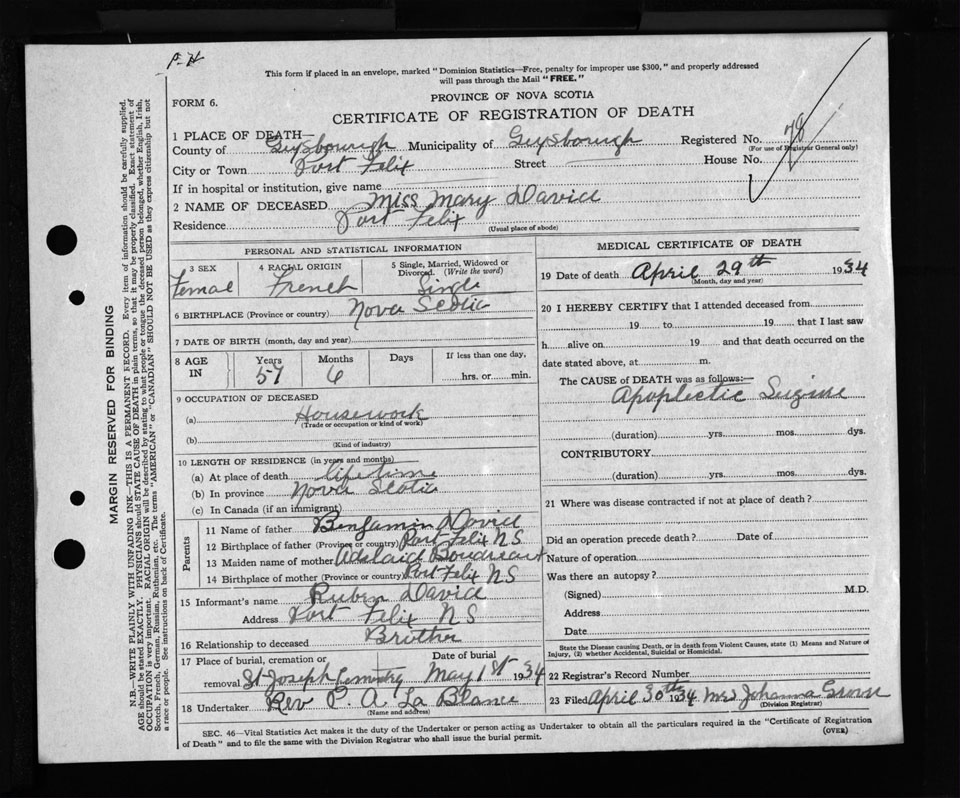 P-H
This form if placed in an envelope, marked "Dominion Statistics—Free, penalty for improper use $300," and properly addressed
will pass through the Mail "FREE."
PROVINCE OF NOVA SCOTIA
FORM 6.
CERTIFICATE OF REGISTRATION OF DEATH
1 PLACE OF DEATH—
County of Guysbourgh Municipality of Guysborough Registered No. 78
(For use of Registrar General only)
City or Town Port Felix Street House No.
If in hospital or institution, give name
2 NAME OF DECEASED Miss Mary David
Residence Port Felix
(Usual place of abode)
PERSONAL AND STATISTICAL INFORMATION
3 SEX 4 RACIAL ORIGIN 5 Single, Married, Widowed or Divorced. (Write the word)
Femal French Single
6 BIRTHPLACE (Province or country) Nova Scotia
7 DATE OF BIRTH (month, day and year)
8 AGE IN Years Months Days If less than one day,
57 6 hrs. or min.
9 OCCUPATION OF DECEASED
(a) Housework
(Trade or occupation or kind of work)
(b)
(Kind of industry)
10 LENGTH OF RESIDENCE (in years and months)
(a) At place of death lifetime
(b) In province Nova Scotia
(c) In Canada (if an immigrant)
Parents
11 Name of father Benjamin David
12 Birthplace of father (Province or country) Port Felix NS
13 Maiden name of mother Adelaid Boudreaut
14 Birthplace of mother (Province or country) Port Felix NS
15 Informant's name Ruben David
Address Port Felix NS
16 Relationship to deceased Brother
17 Place of burial, cremation or Date of burial
removal St Joseph May 1st 1934
18 Undertaker Rev P. A. La Blanc
(Name and address)
MEDICAL CERTIFICATE OF DEATH
19 Date of death April 29th 1934
(Month, day and year)
20 I HEREBY CERTIFY that I attended deceased from
19 to 19 that I last saw
h alive on 19 and that death occurred on the
date stated above, at m.
The CAUSE OF DEATH was as follows:—
Apoplectic Seizure
(duration) yrs. mos. dys.
CONTRIBUTORY
(duration) yrs. mos. dys.
21 Where was disease contracted if not at place of death?
Did an operation precede death? Date of
Nature of operation
Was there an autopsy?
(Signed) M.D.
Address
Date
State the Disease causing Death, or in death from Violent Causes, state (1) Means and Nature of
Injury, (2) whether Accidental, Suicidal or Homicidal.
22 Registrar's Record Number
23 Filed April 30th 1934 Mrs Johanna
(Division Registrar)
SEC. 46—Vital Statistics Act makes it the duty of the Undertaker or person acting as Undertaker to obtain all the particulars required in the "Certificate of Registration
of Death" and to file the same with the Division Registrar who shall issue the burial permit.
(OVER)
MARGIN RESERVED FOR BINDING
N.B.—WRITE PLAINLY WITH UNFADING INK—THIS IS A PERMANENT RECORD. Every item of information should be carefully supplied.
AGE should be stated EXACTLY. PHYSICIANS should STATE CAUSE OF DEATH in plain terms, so that it may be properly classified. Exact statement of
OCCUPATION is very important. RACIAL ORIGIN will be described by stating to what people or tongue the deceased person belonged, whether English, Irish,
Scotch, French, German, Russian, Ruthenian, etc. The terms "AMERICAN" or "CANADIAN" SHOULD NOT BE USED as they express citizenship but not
a race or people. See instructions on back of Certificate.